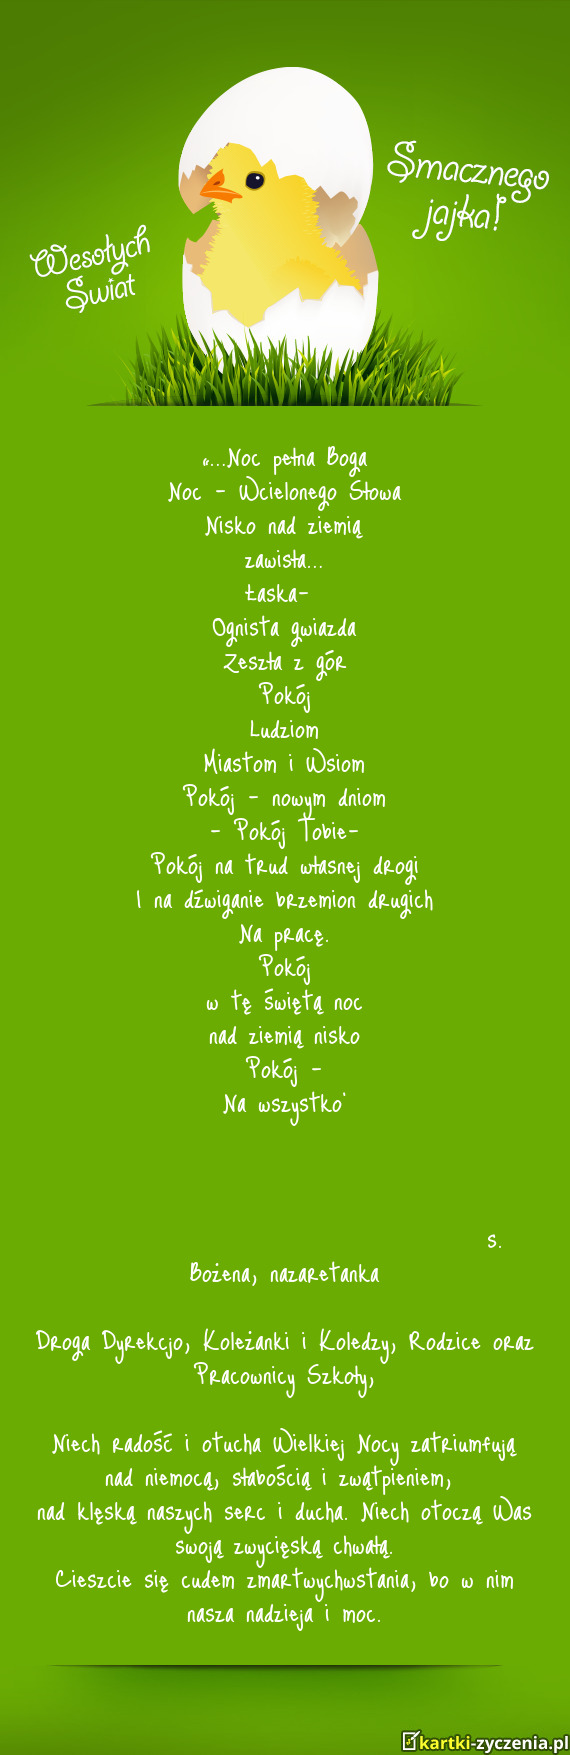 Smacznego
jajka!
Wesołych
Świat
"...Noc pełna Boga
Noc - Wcielonego Słowa
Nisko nad ziemią
zawisła...
Łaska-
Ognista gwiazda
Zeszła z gór
Pokój
Ludziom
Miastom i Wsiom
Pokój - nowym dniom
- Pokój Tobie-
Pokój na trud własnej drogi
I na dźwiganie brzemion drugich
Na pracę.
Pokój
w tę świętą noc
nad ziemią nisko
Pokój -
Na wszystko'
s.
Bożena, nazaretanka
Droga Dyrekcjo, Koleżanki i Koledzy, Rodzice oraz
Pracownicy Szkoły,
Niech radość i otucha Wielkiej Nocy zatriumfują
nad niemocą, słabością i zwątpieniem,
nad klęską naszych serc i ducha. Niech otoczą Was
swoją zwycięską chwałą.
Cieszcie się cudem zmartwychwstania, bo w nim
nasza nadzieja i moc.
kartki-zyczenia.pl